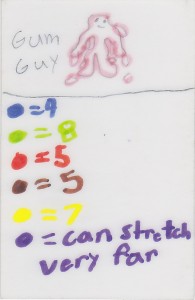 Gum
Guy
=9
=8
=5
=5
=7
=can stretch
very far